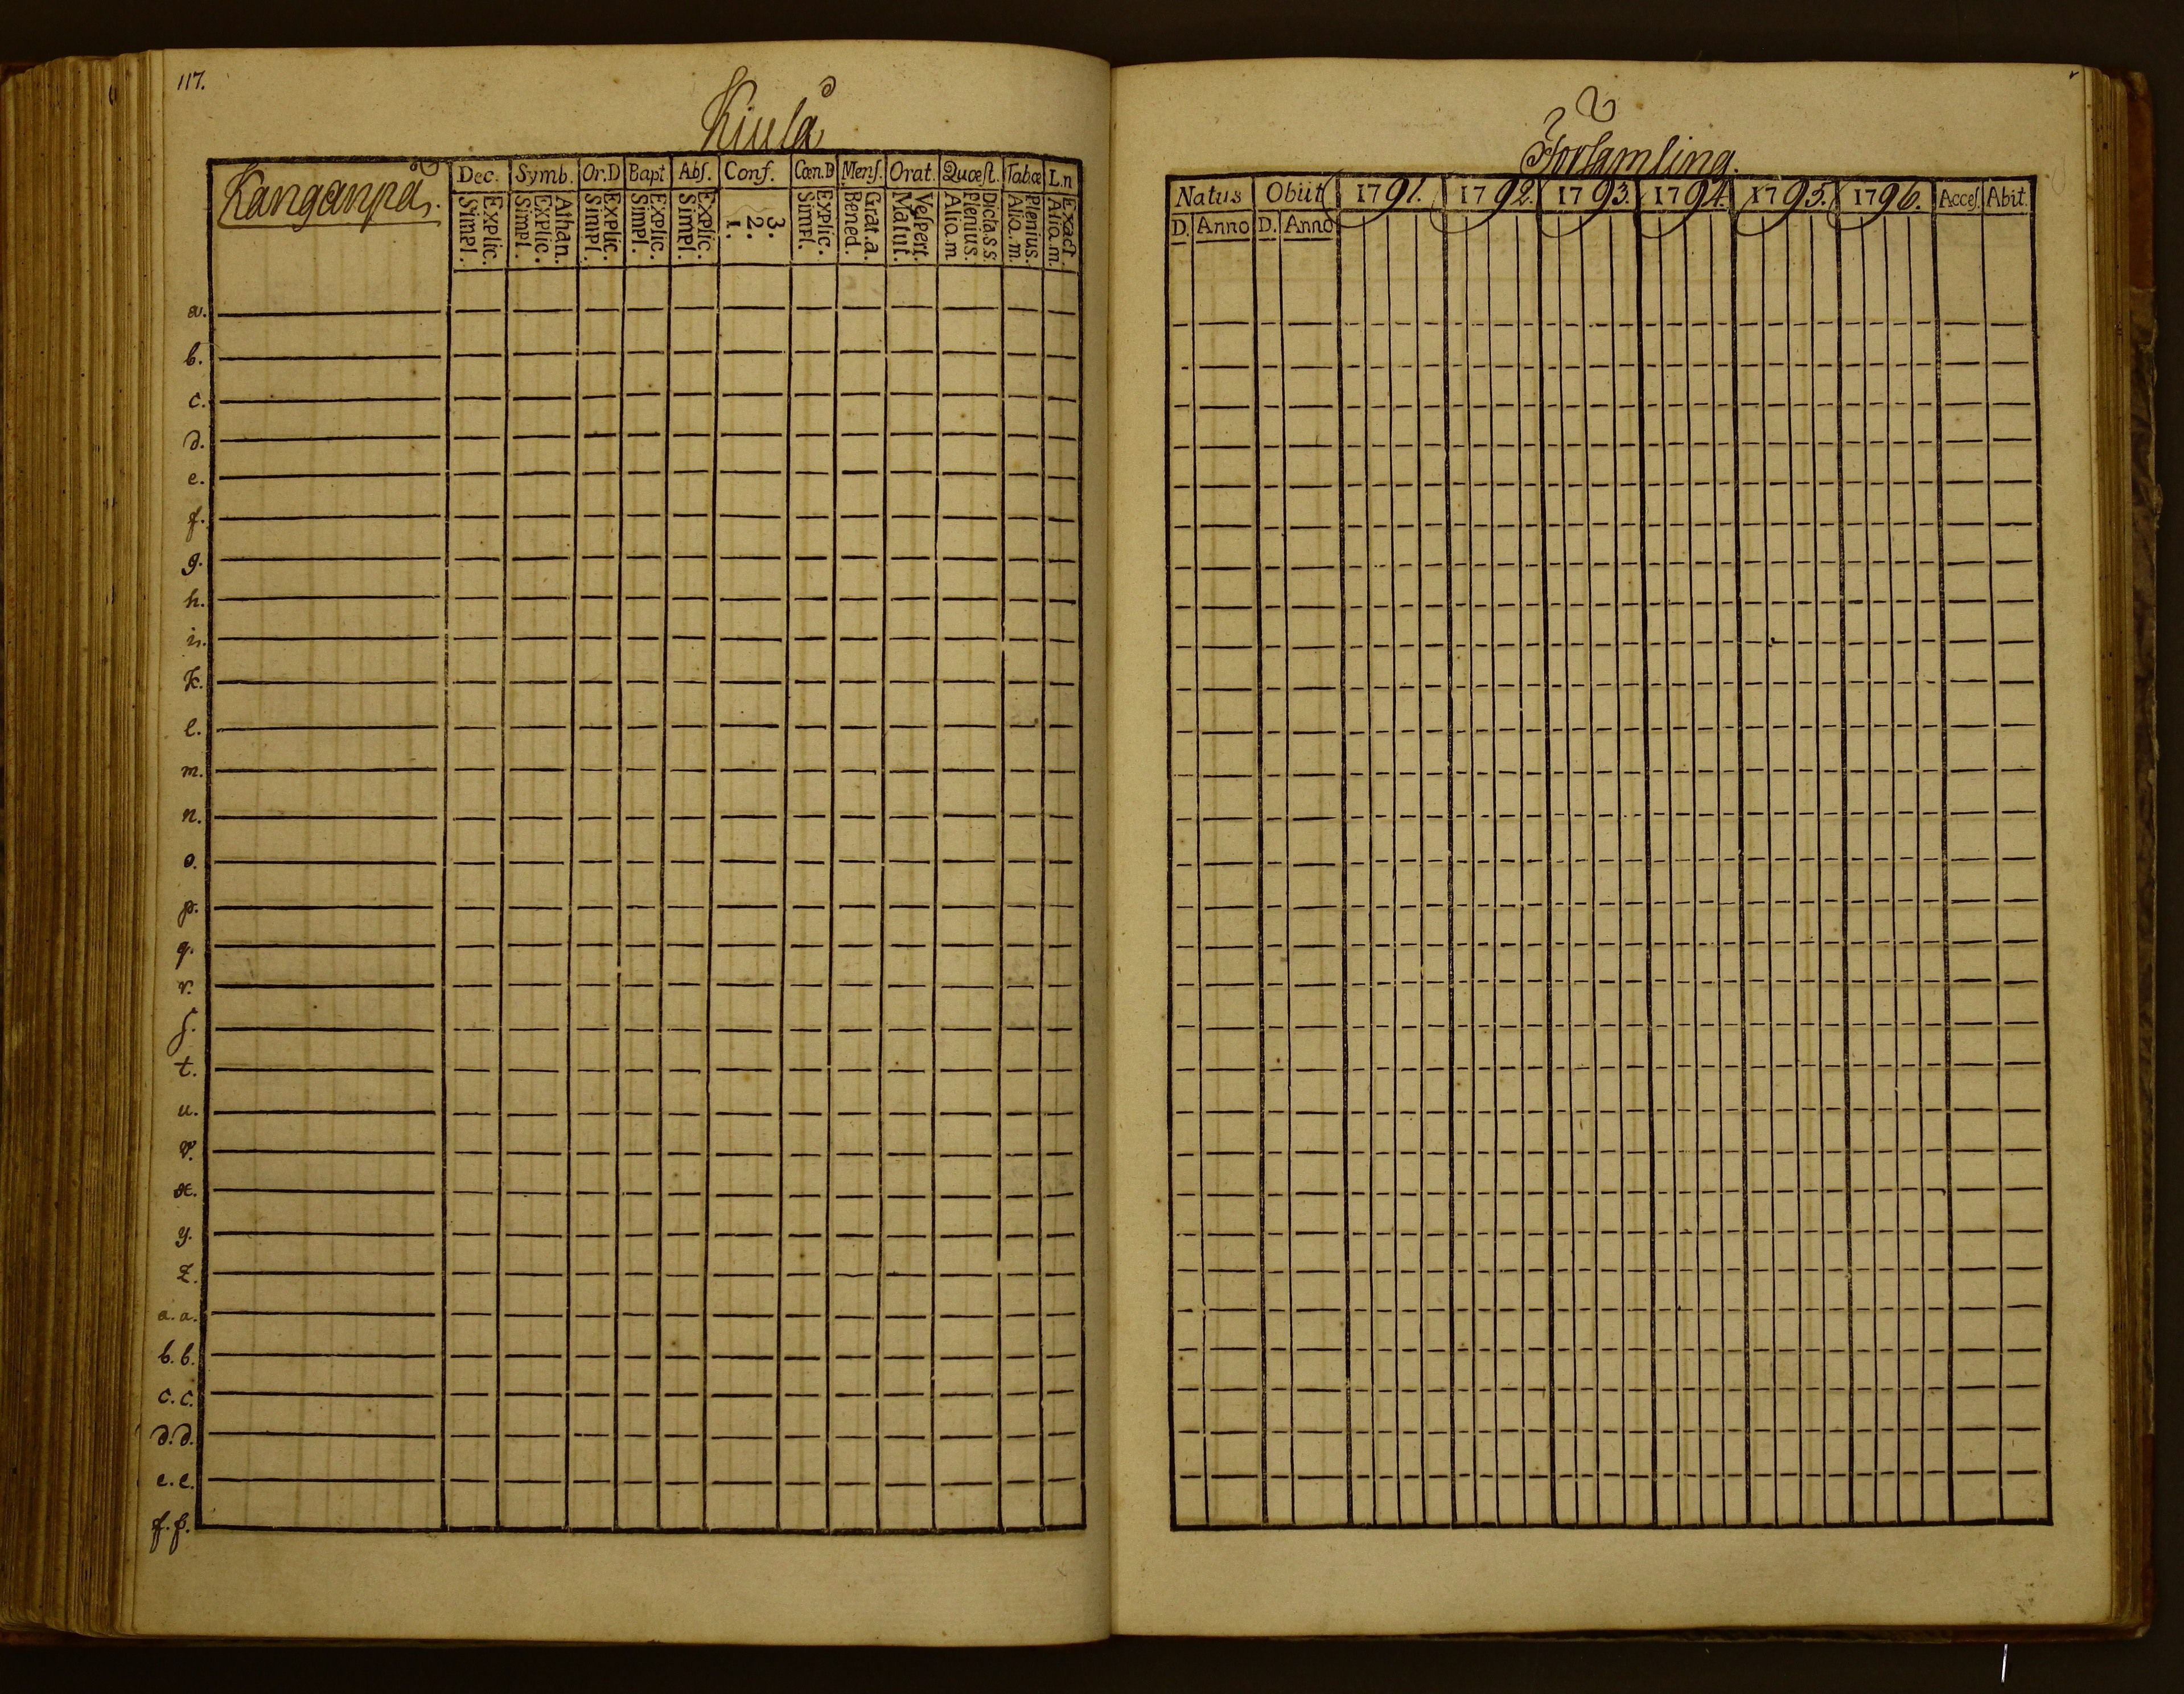 117.
Kiula
Kanganpä.
Dec. Symb. Or.D Bapt Abſ. Conf. Cœn.D Menſ. Orat. Quæſt. Tabæ L.n
Simpl. Explic. Simpl. Explic. Athan. Simpl. Explic. Simpl. Explic. Simpl. Explic. 1. 2. 3. Simpl. Explic. Bened. Grat.a. Matut. Veſpert. Alio.m Plenius. Dicta.s.s. Alio.m. Plenius. Alio.m. Exact.
a.
b.
c.
d.
e.
f.
g.
h.
i.
k.
l.
m.
n.
o.
p.
q.
r.
ſ.
t.
u.
v.
x.
y.
z.
a.a.
b.b.
c.c.
d.d.
e.e.
f.f.
Forsamling.
Natus Obiit 1791. 1792. 1793. 1794. 1795. 1796. Acceſ. Abit.
D. Anno D. Anno